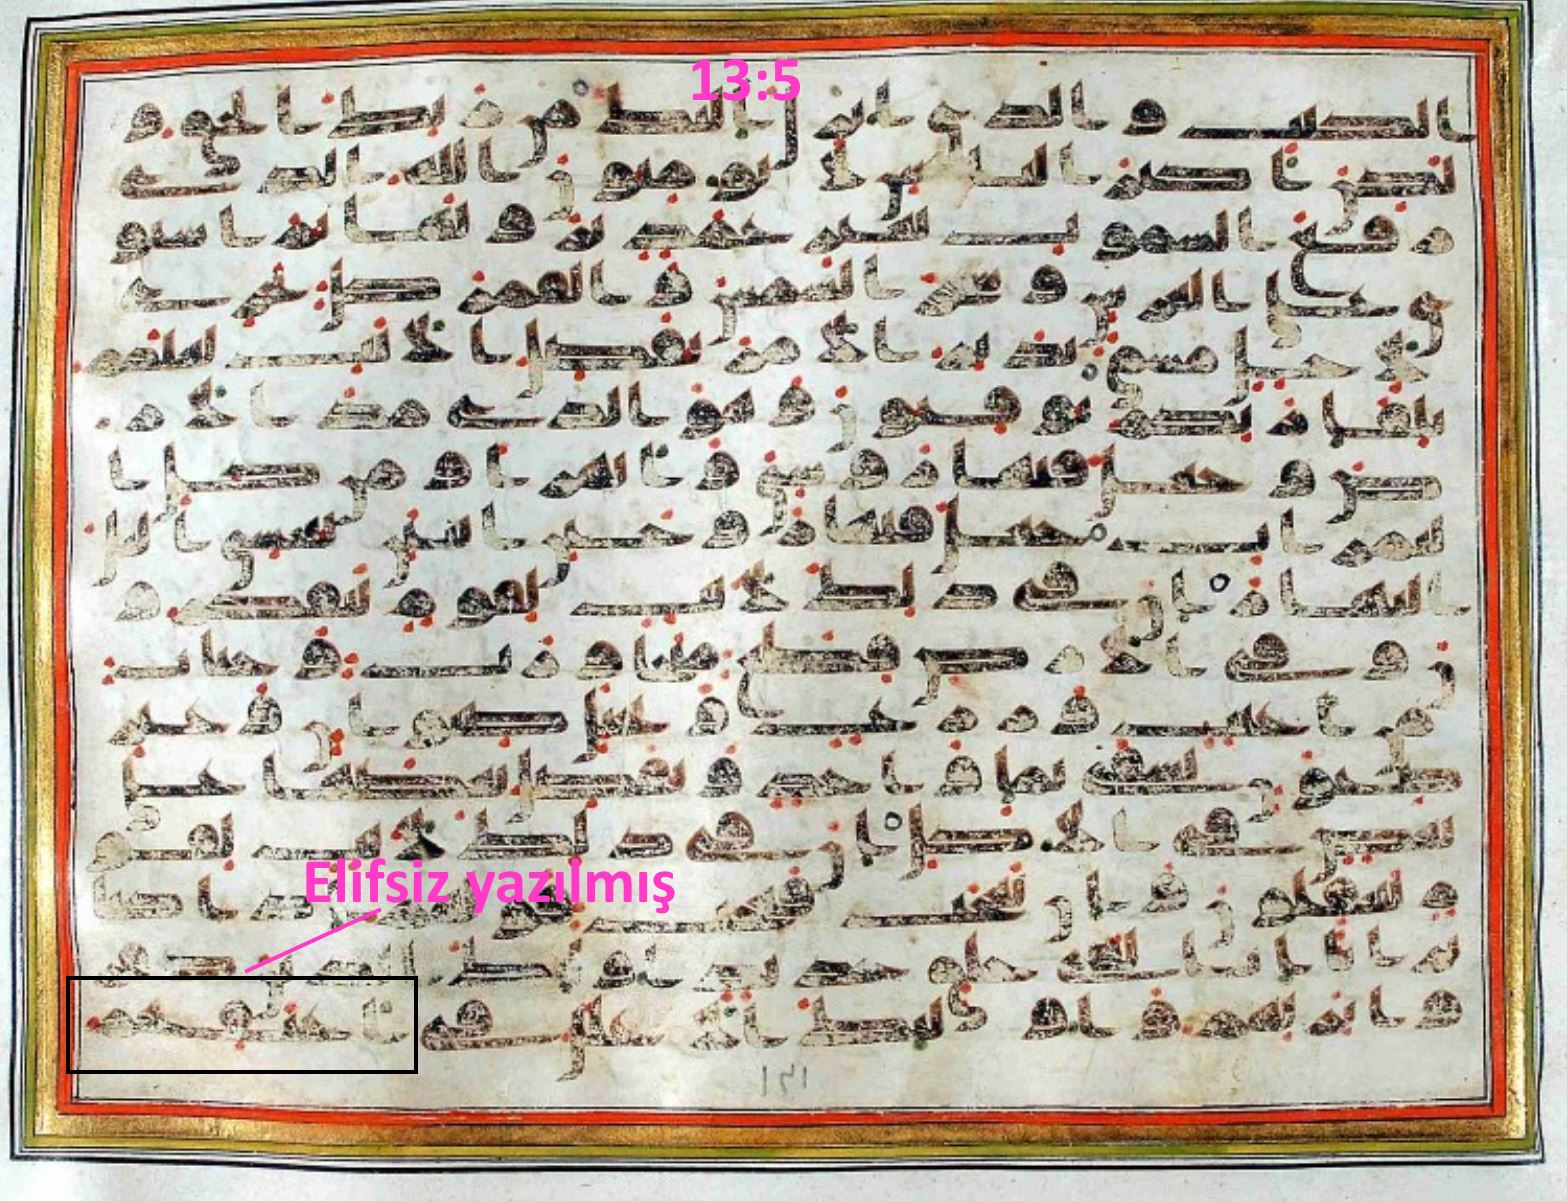 13:5
الكتب والذي انزل اليك من ربك الحق و
لكن اكثر الناس لا يومنون الله الذي ر
فع السموت بغير عمد ترونها ثم استو
ى على العرش وسخر الشمس والقمر كل يجر
ى لاجل مسمى يدبر الامر يفصل الايت لعلكم
بلقا ربكم توقنون وهو الذي مد الا
رض وجعل فيها روسي وانهرا ومن كل ا
لثمرت جعل فيها زوجين اثنين يغشي اليل
النهار ان في ذلك لايت لقوم يتفكرو
ن وفي الارض قطع متجورت وجنت
من اعنب وزرع ونخيل صنوان وغير
صنوان يسقى بما وحد ونفضل بعضها على
بعض في الاكل ان في ذلك لايت لقو
Elifsiz yazılmış
م يعقلون وان تعجب فعجب قولهم اذا كنا
تربا انا لفي خلق جديد اولئك الذين كفرو
ا بربهم واولئك الاغلل في اعنقهم